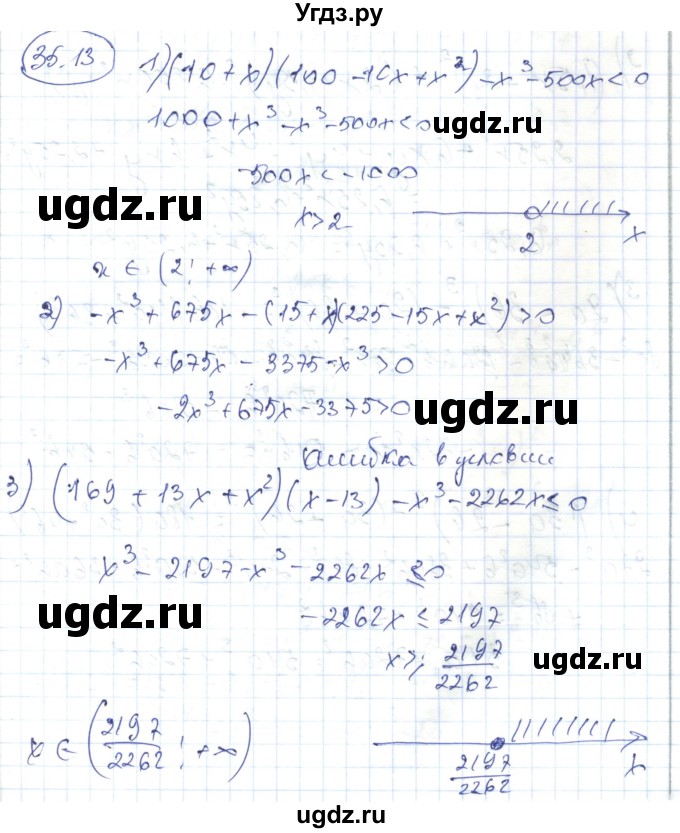 Угдз.ру
35.13
1) (10+x)(100-10x+x²)-x³-500x<0
1000+x³-x³-500x<0
ugdz.ru
-500x<-1000
ugdz.ru
x>2
2 x
x ∈ (2; +∞)
2) -x³+675x-(15+x)(225-15x+x²)>0
-x³+675x-3375-x³>0
-2x³+675x-3375>0
ugdz.ru
Ошибка в условии
3) (169+13x+x²)(x-13)-x³-2262x≤0
x³-2197-x³-2262x≤0
ugdz.ru
-2262x≤2197
x≥; 2197/2262
ugdz.ru
x ∈ (2197/2262; +∞)
2197/2262 x
ugdz.ru